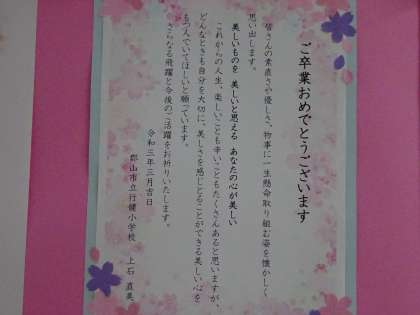 ご卒業おめでとうございます
皆さんの素直さや優しさ、物事に一生懸命取り組む姿を懐かしく
思い出します。
美しいものを 美しいと思える あなたの心が美しい
これからの人生、楽しいことも辛いこともたくさんあると思いますが、
どんなときも自分を大切に、美しさを感じとることができる美しい心を
もつ人でいてほしいと願っています。
さらなる飛躍と今後のご活躍をお祈りいたします。
令和三年三月吉日
郡山市立行健小学校 上石 直美